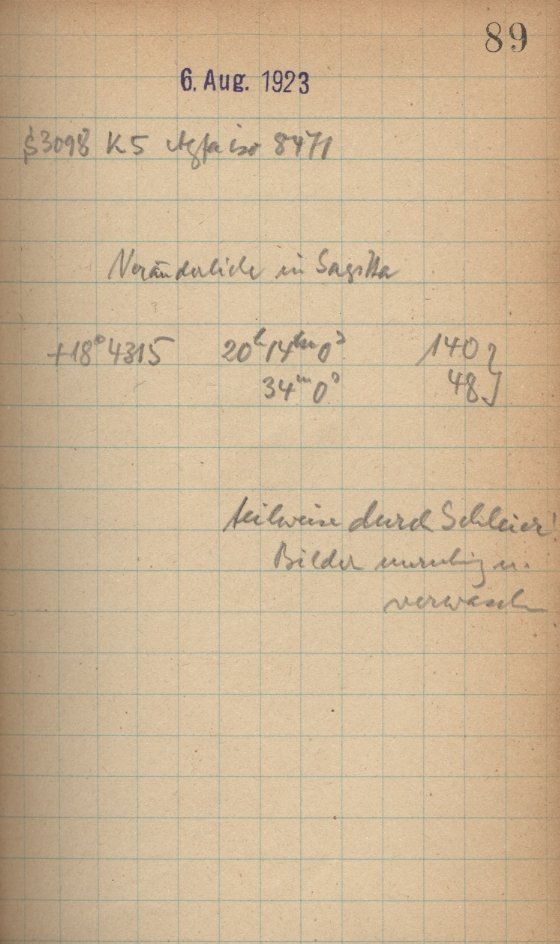 89
6. Aug. 1923
S3098 K5 Agfa iso 8471
Veränderliche in Sagitta
+18°4315 20h14m0s 140
34m0s 48
teilweise durch Schleier!
Bilder unruhig u.
verwaschen